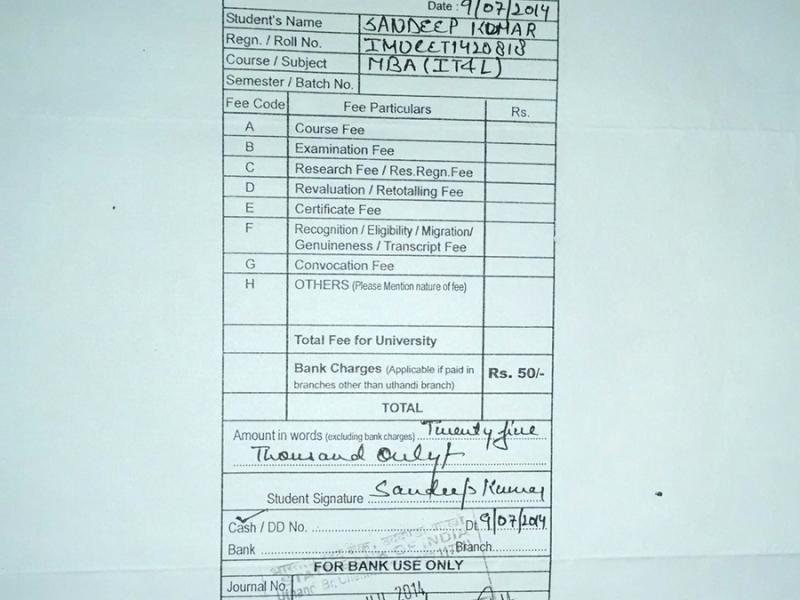 Date : 9/07/2014
Student's Name SANDEEP KUMAR
Regn. / Roll No. IMUCET1420818
Course / Subject MBA (IT&L)
Semester / Batch No.
Fee Code Fee Particulars Rs.
A Course Fee
B Examination Fee
C Research Fee / Res.Regn.Fee
D Revaluation / Retotalling Fee
E Certificate Fee
F Recognition / Eligibility / Migration/
Genuineness / Transcript Fee
G Convocation Fee
H OTHERS (Please Mention nature of fee)
Total Fee for University
Bank Charges (Applicable if paid in
branches other than uthandi branch) Rs. 50/-
TOTAL
Amount in words (excluding bank charges) Twenty five
Thousand Only/
Student Signature Sandeep Kumar
Cash / DD No. Dt. 9/07/2014
Bank Branch
OF INDIA
FOR BANK USE ONLY
Uthandi Br,
Journal No.
2014